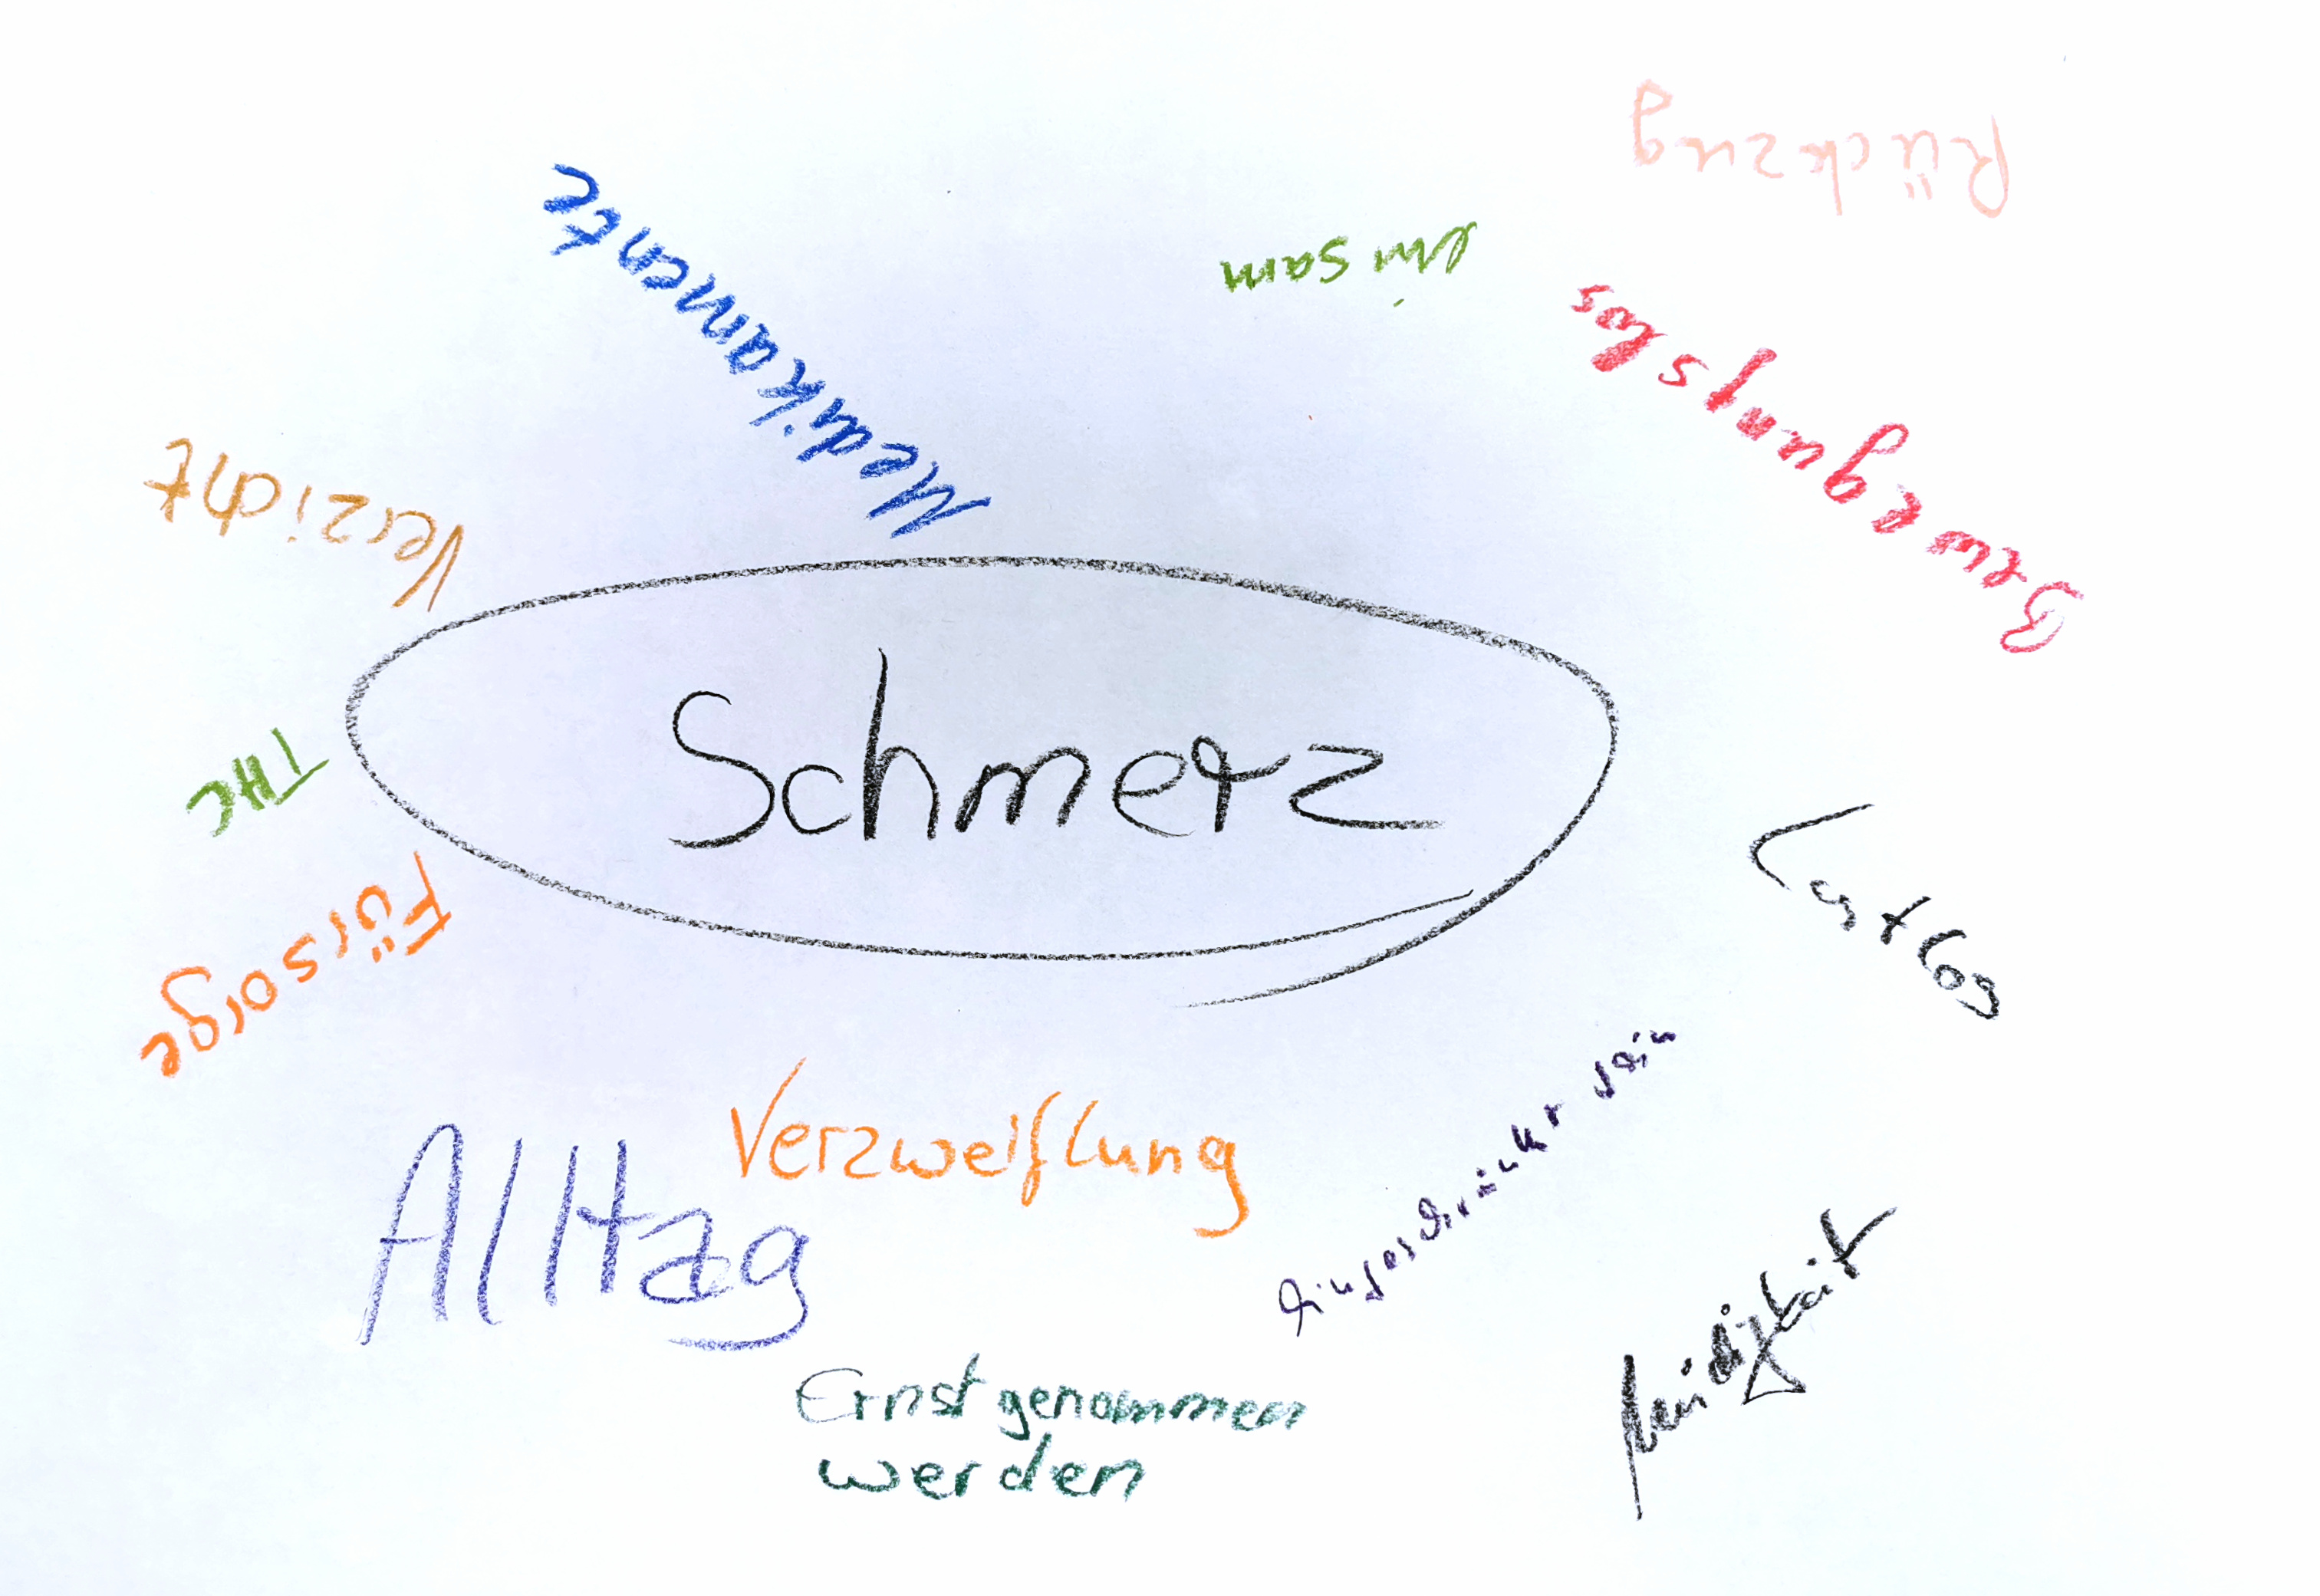 Rückzug
einsam
Medikamente
Bewegungslos
Verzicht
Schmerz
THC
Lustlos
Fürsorge
Verzweiflung
eingeschränkt sein
Alltag
Müdigkeit
Ernst genommen
werden